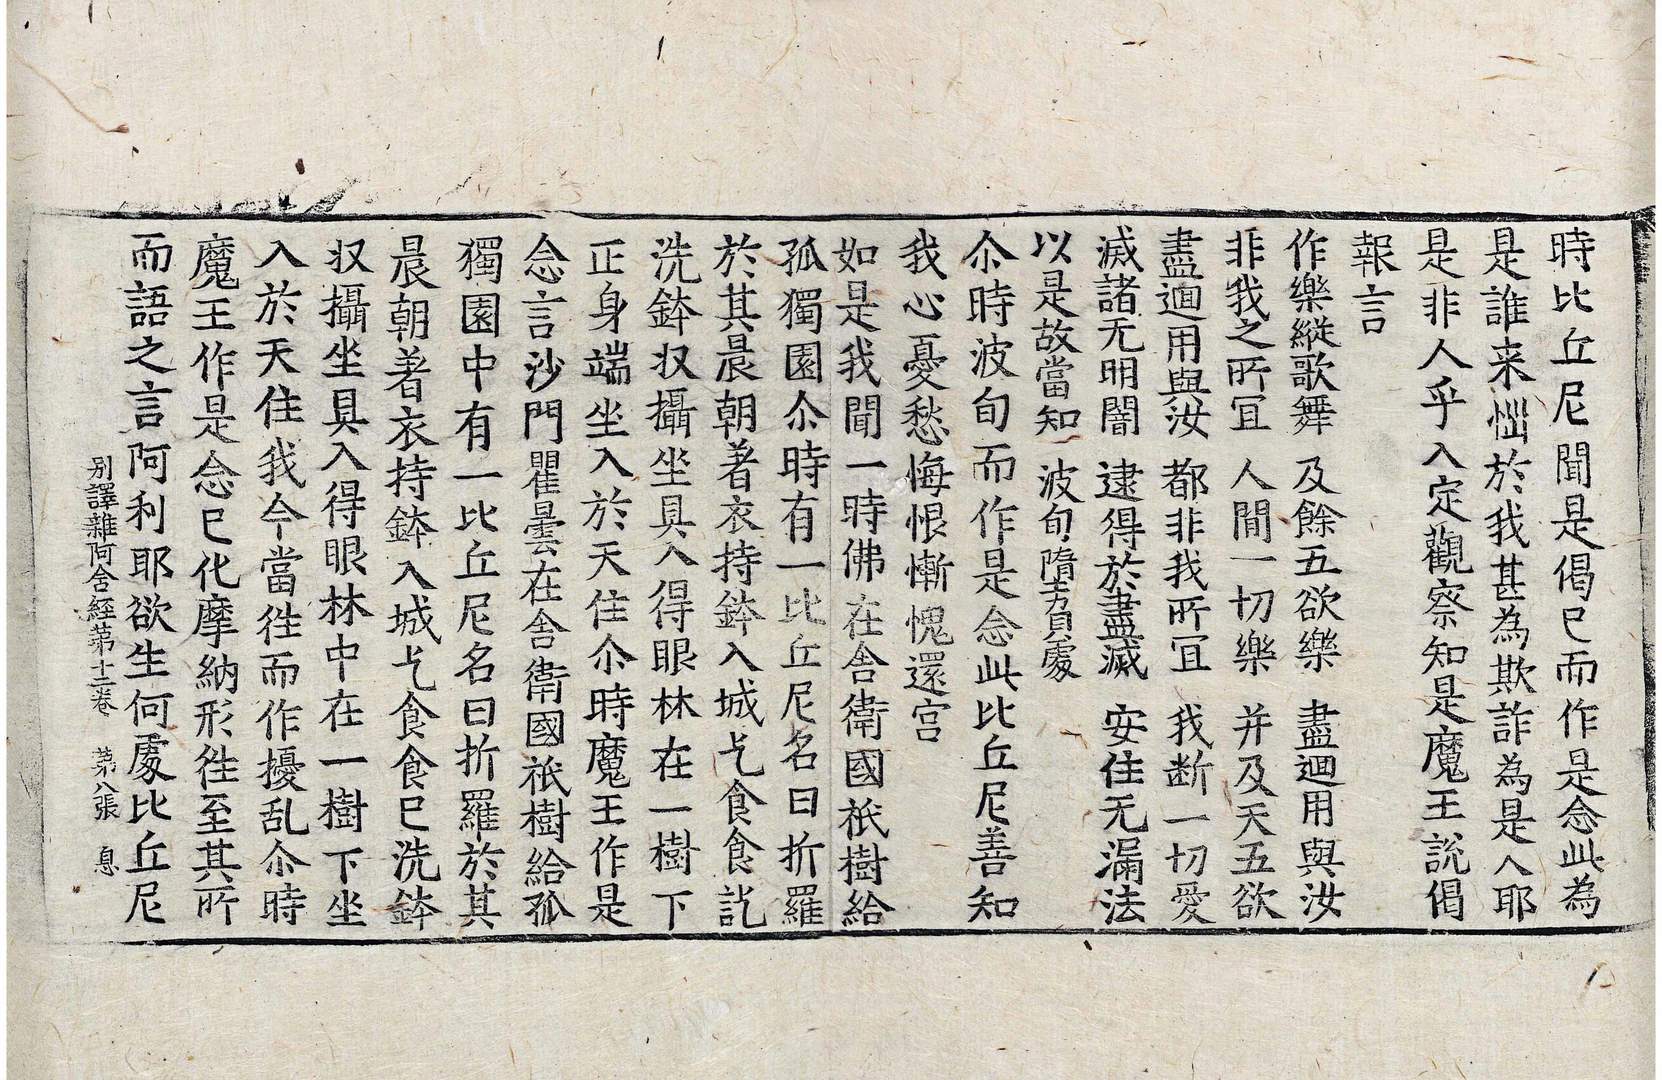 時比丘尼聞是偈已而作是念此為
是誰来惱於我甚為欺詐為是人耶
是非人乎入定觀察知是魔王說偈
報言
作樂縱歌舞 及餘五欲樂 盡迴用與汝
非我之所冝 人間一切樂 并及天五欲
盡迴用與汝 都非我所冝 我断一切愛
滅諸无明闇 逮得於盡滅 安住无漏法
以是故當知 波旬墮負處
尒時波旬而作是念此比丘尼善知
我心憂愁悔恨慚愧還宫
如是我聞一時佛在舍衛國祇樹給
孤獨園尒時有一比丘尼名曰折羅
於其晨朝著衣持鉢入城乞食食訖
洗鉢収攝坐具入得眼林在一樹下
正身端坐入於天住尒時魔王作是
念言沙門瞿曇在舍衛國祇樹給孤
獨園中有一比丘尼名曰折羅於其
晨朝著衣持鉢入城乞食食已洗鉢
収攝坐具入得眼林中在一樹下坐
入於天住我今當徃而作擾乱尒時
魔王作是念已化摩納形徃至其所
而語之言阿利耶欲生何處比丘尼
别譯雜阿含經第十二卷 第八張 息